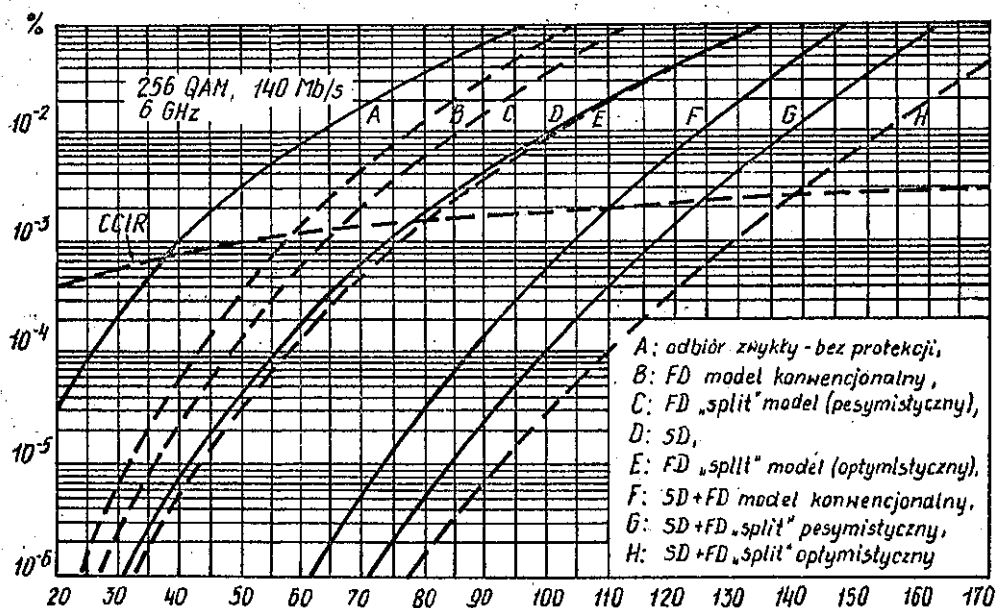 %
256 QAM, 140 Mb/s
6 GHz
A B C D E F G H
10⁻²
CCIR
10⁻³
10⁻⁴
10⁻⁵
10⁻⁶
A: odbiór zwykły - bez protekcji,
B: FD model konwencjonalny,
C: FD „split" model (pesymistyczny),
D: SD,
E: FD „split" model (optymistyczny),
F: SD+FD model konwencjonalny,
G: SD+FD „split" pesymistyczny,
H: SD+FD „split" optymistyczny
20 30 40 50 60 70 80 90 100 110 120 130 140 150 160 170